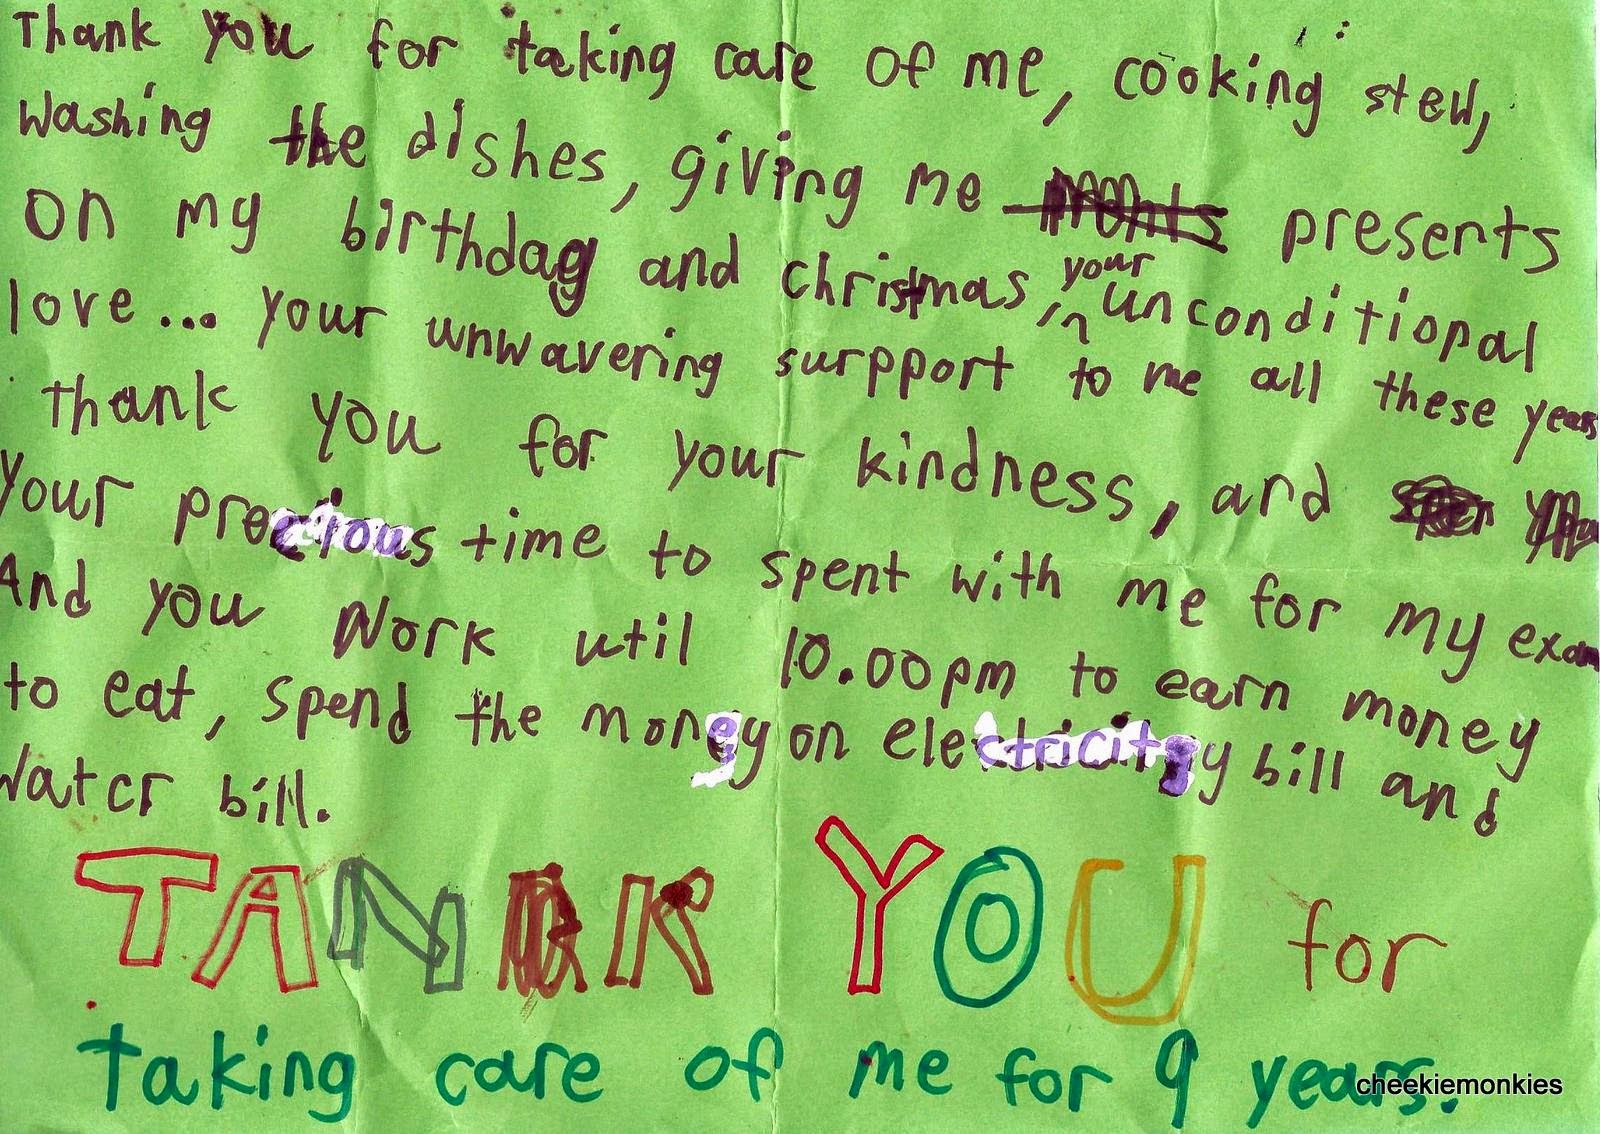 Thank you for taking care of me, cooking stew,
Washing the dishes, giving me presents
on my birthday and christmas, in your unconditional
love... your unwavering surpport to me all these years
thank you for your kindness, and
your precious time to spent with me for my exam
And you Work util 10.00pm to earn money
to eat, spend the money on electricity bill and
Water bill.
TANK YOU for
taking care of me for 9 years.
cheekiemonkies